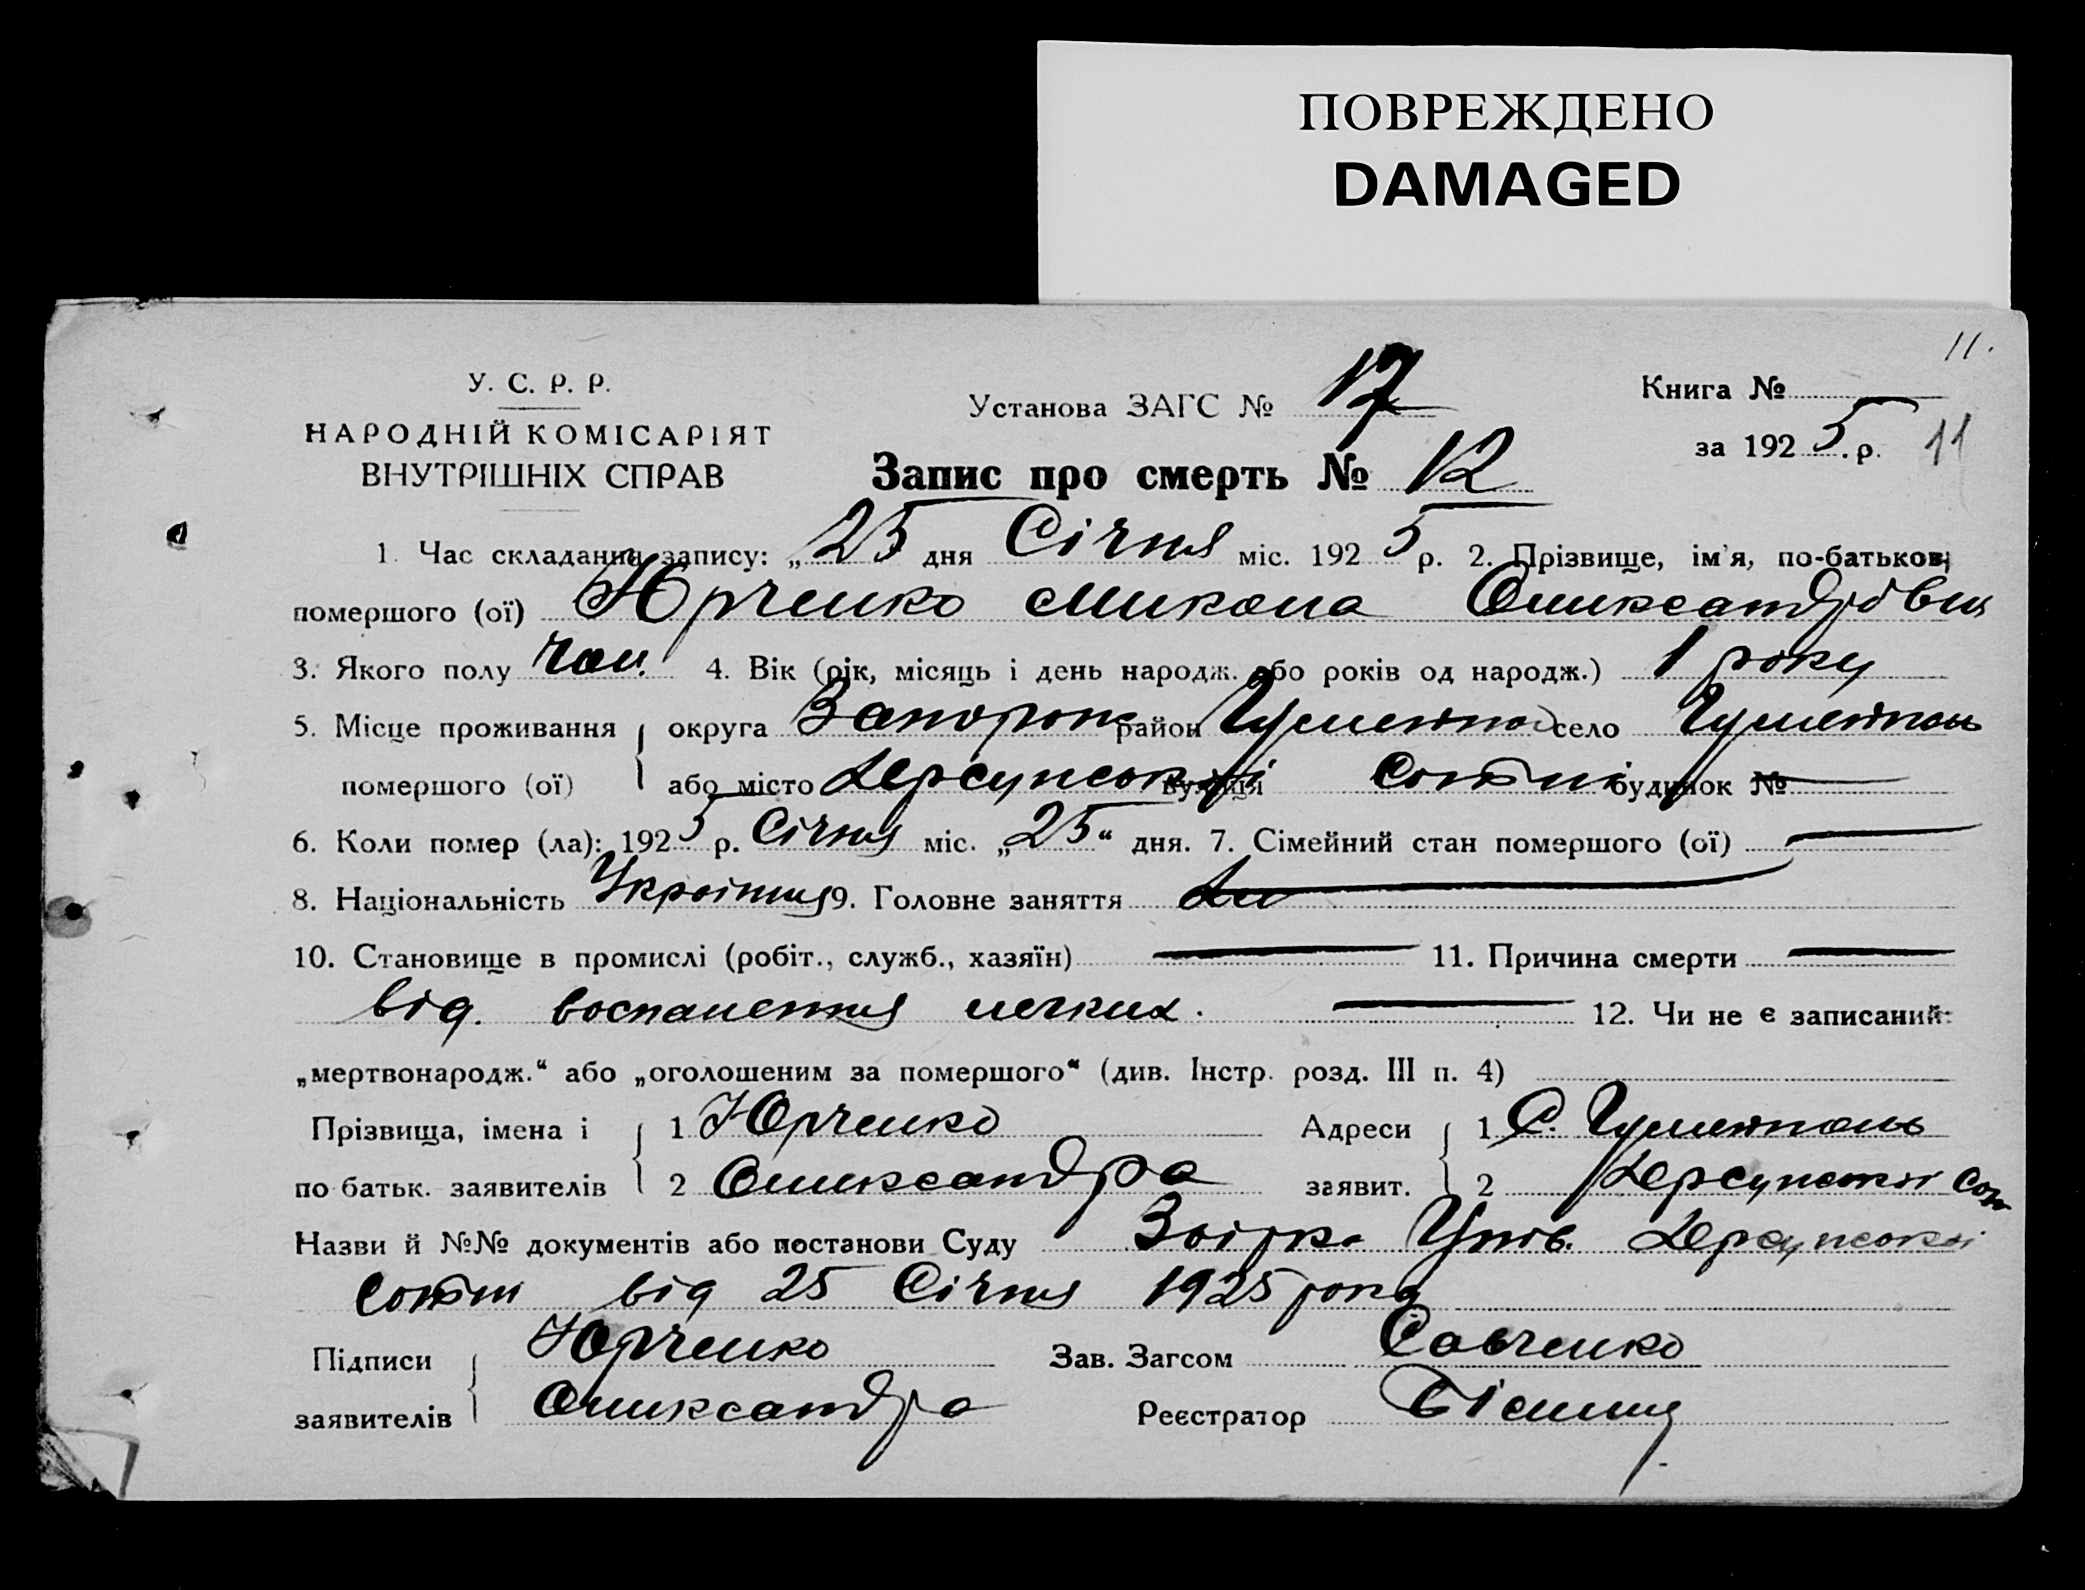 ПОВРЕЖДЕНО
DAMAGED
11.
У. С. Р. Р.
НАРОДНІЙ КОМІСАРІЯТ
ВНУТРІШНІХ СПРАВ
Установа ЗАГС № 17
Книга №
за 1925 р. 11
Запис про смерть № 12
1. Час складання запису: „25 дня Січня міс. 1925 р. 2. Прізвище, ім'я, по-батькові
помершого (ої) Юрченко Микола Олександрівич
3. Якого полу чол. 4. Вік (рік, місяць і день народж. або років од народж.) 1 року
5. Місце проживання округа Запорож район село
помершого (ої) або місто вулиця Сотні будинок №
6. Коли помер (ла): 1925 р. Січня міс. „25“ дня. 7. Сімейний стан помершого (ої)
8. Національність 9. Головне заняття
10. Становище в промислі (робіт., служб., хазяїн) 11. Причина смерти
від. воспалення легких. 12. Чи не є записаний:
„мертвонародж.“ або „оголошеним за помершого“ (див. Інстр. розд. III п. 4)
Прізвища, імена і 1 Юрченко Адреси 1 С.
по батьк. заявителів 2 Олександра заявит. 2
Назви й №№ документів або постанови Суду
Сотні від 25 Січня 1925 року
Підписи Юрченко Зав. Загсом Савченко
заявителів Олександра Реєстратор